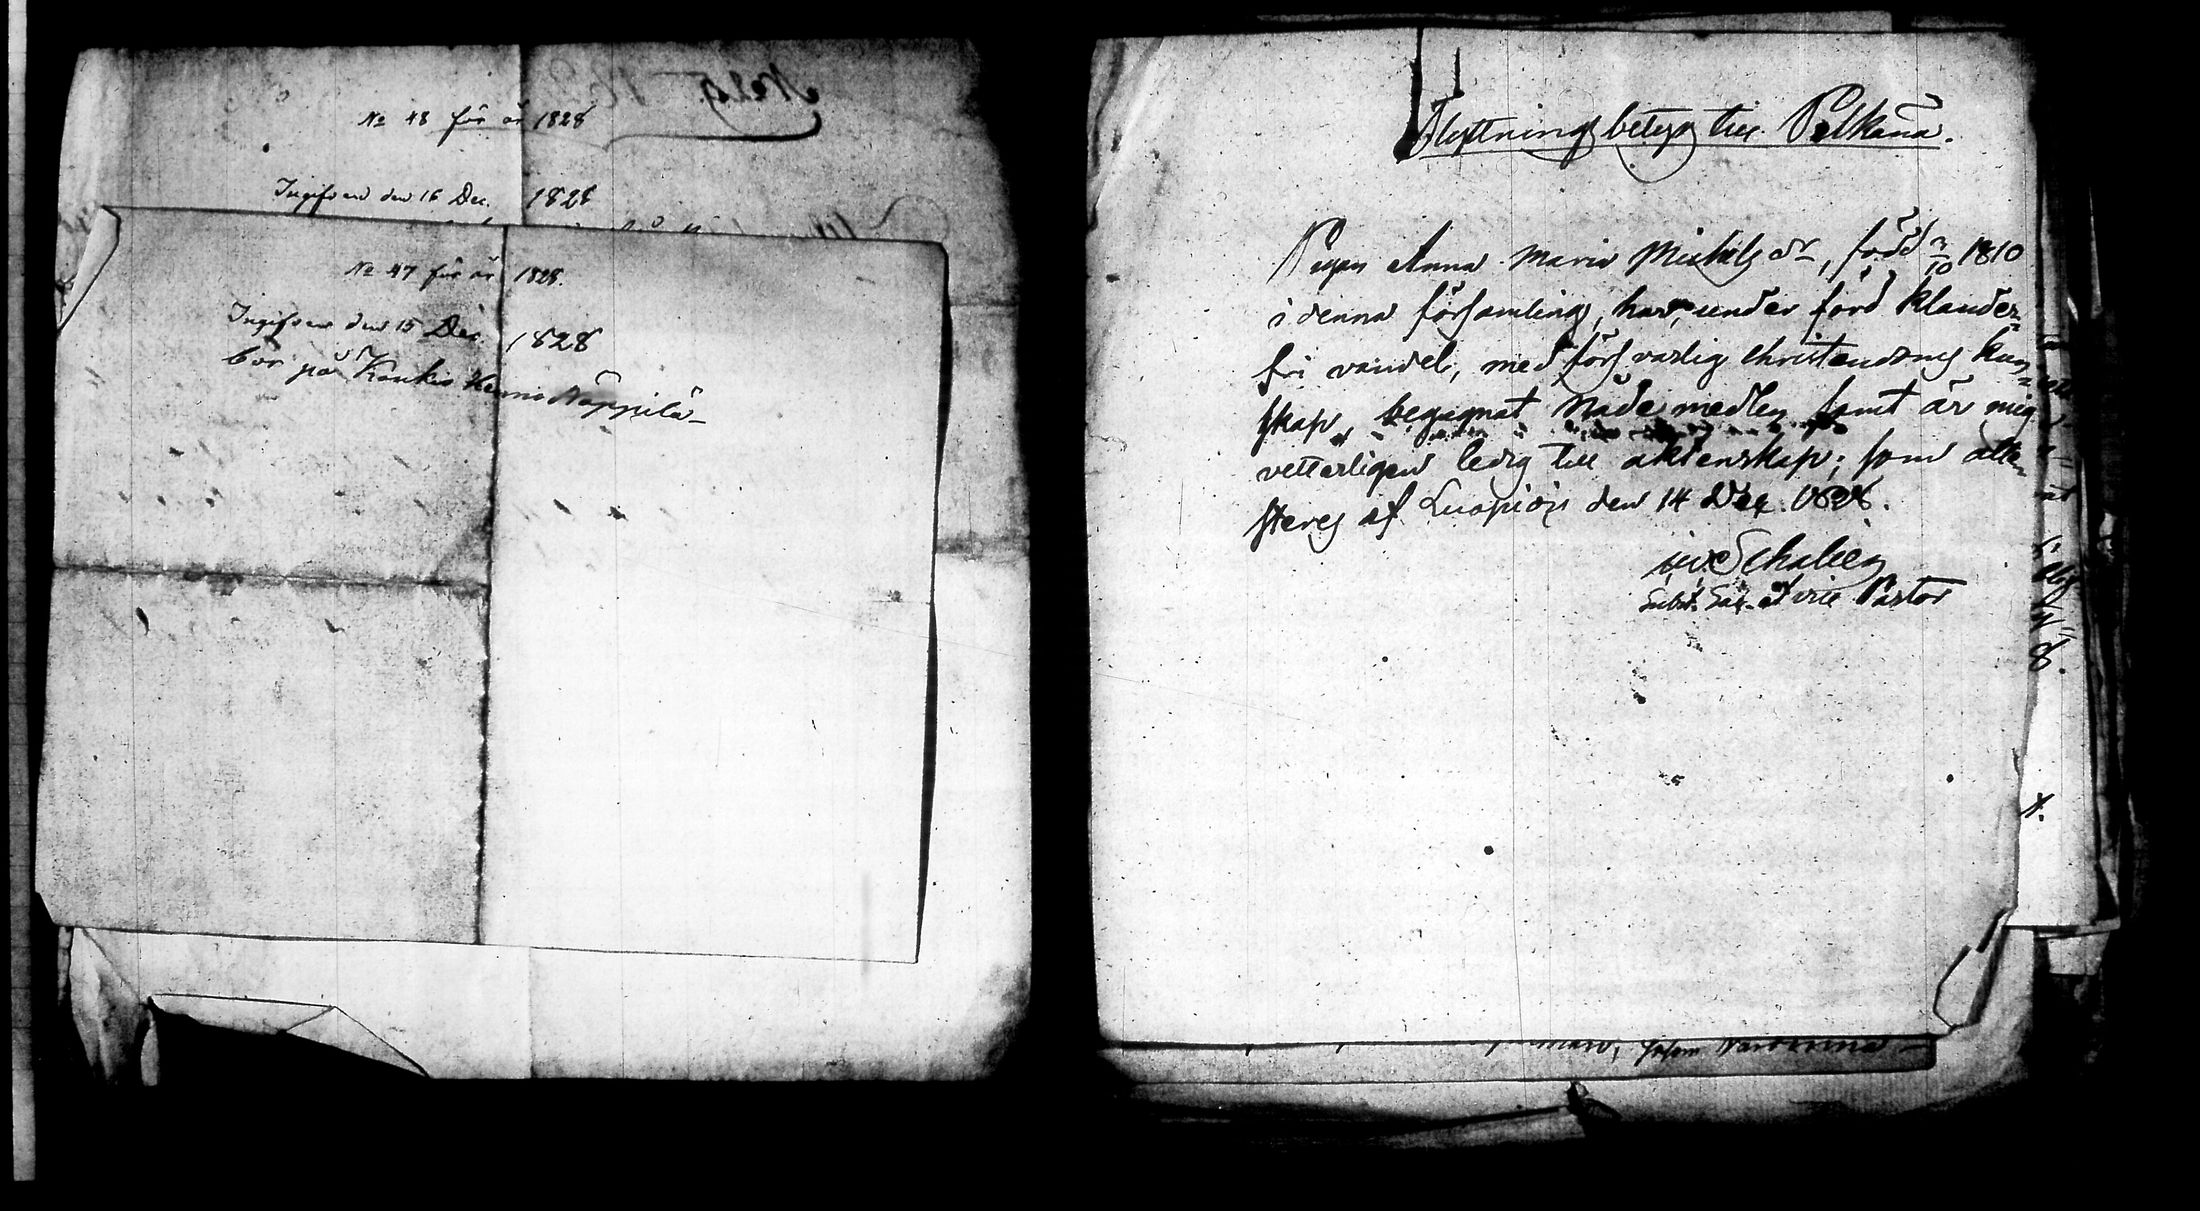 No 48 för år 1828
Ingifven den 16 Dec. 1828
No 47 för år 1828.
Ingifven den 15 Dec. 1828
bor på Koukis Hemi Näppilä
Flyttnings betyg till Pelkäna.
Pigan Anna Maria Michels dr, född 3/10 1810
i denna församling, har, under förd klander-
fri vandel, med försvarlig Christendoms kun-
skap, begagnat Nåde medlen samt är mig
vetterligen ledig till äktenskap; som atte-
steres af Luopiois den 14 Dec. 1828.
Schalien
Subst. Sac. et vice Pastor